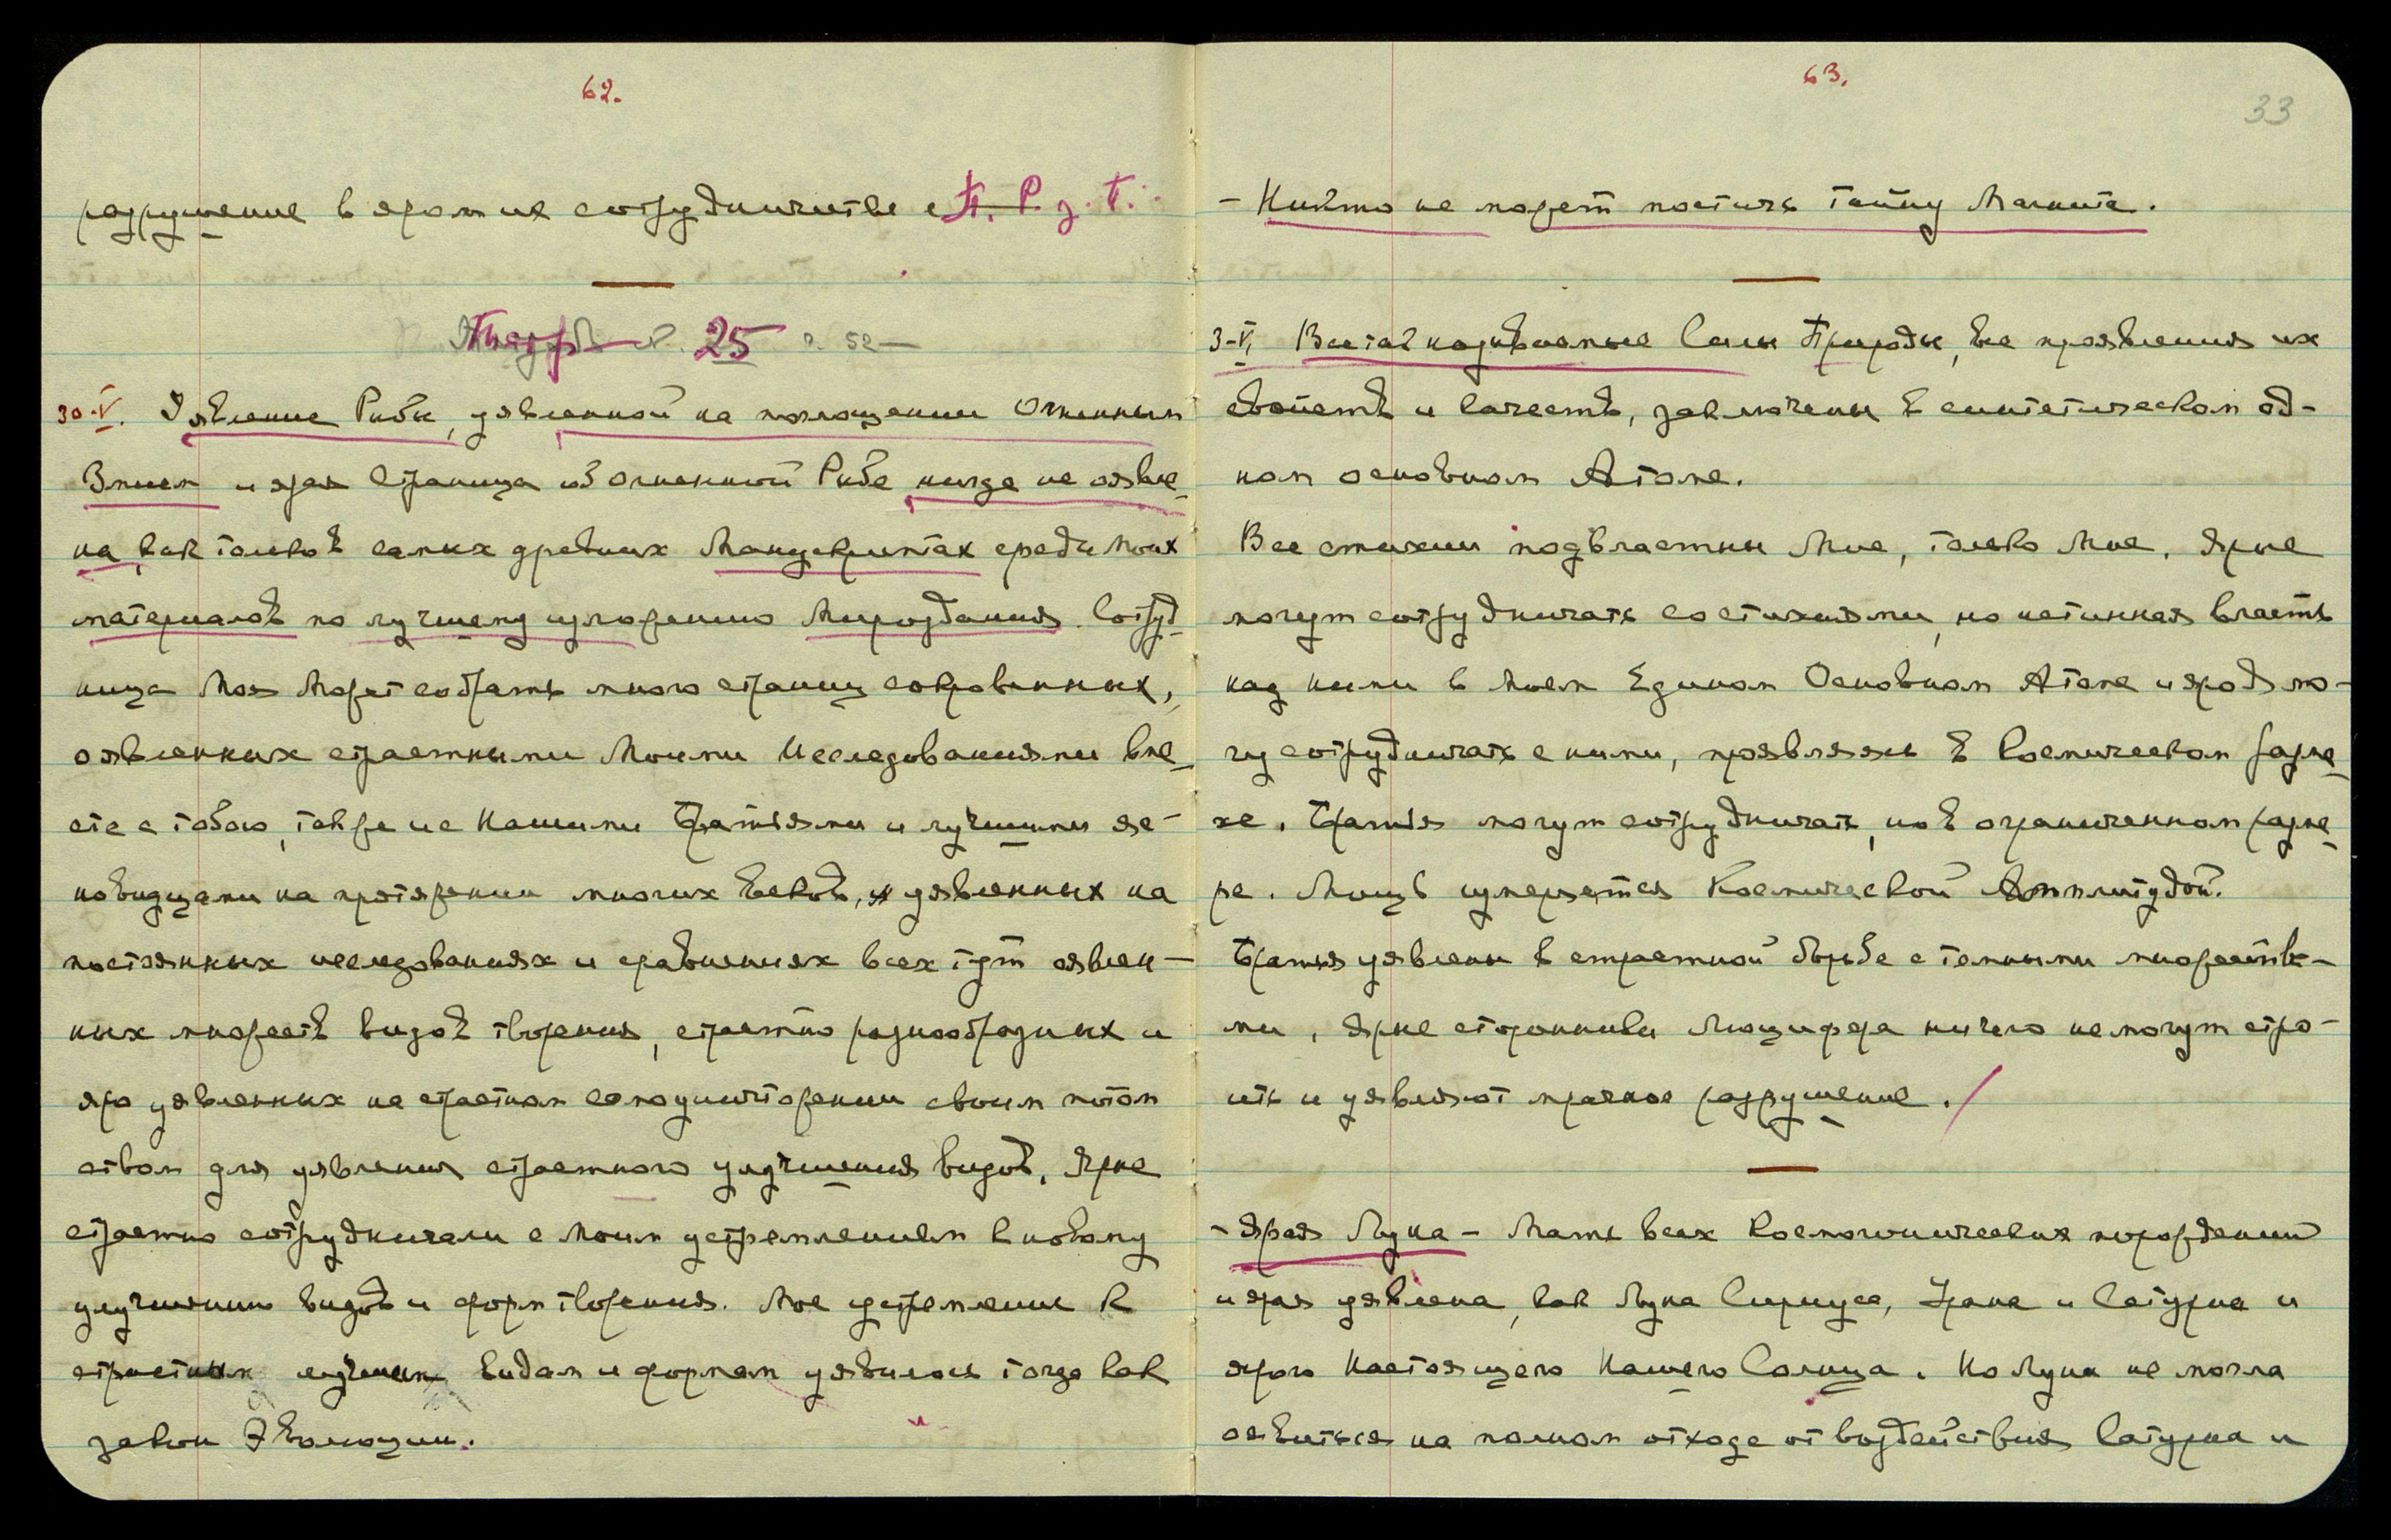 62.
разрушение в яром их сотрудничестве с П. Р. з. П.
25 г. 52 —
30-V. Уявление Рыбы, уявленной на поглощении Огненным
Змием и ярая страница об Огненной Рыбе нигде не оявле-
на, как только в самых древних Манускриптах среди Моих
материалов по лучшему изложению Мироздания. Сотруд-
ница Моя может собрать много страниц сокровенных,
оявленных страстными Моими Исследованиями вме-
сте с тобою, также и с Нашими Братьями и лучшими яс-
новидцами на протяжении многих веков, и уявленных на
постоянных исследованиях и сравнениях всех тут оявлен-
ных множеств видов творения, страстно разнообразных и
яро уявленных на страстном самоуничтожении своим потом
ством для уявления страстного улучшения видов. Ярые
страстно сотрудничали с Моим устремлением к новому
улучшению видов и форм творения. Мое устремление к
страстным лучшим видам и формам уявилось тогда как
закон Эволюции.
63.
33
- Никто не может постичь тайну Магнита.
3-V. Все так называемые Силы Природы, все проявления их
свойств и качеств, заключены в синтетическом од-
ном основном Атоме.
Все стихии подвластны Мне, только Мне. Ярые
могут сотрудничать со стихиями, но истинная власть
над ними в Моем Едином Основном Атоме и яро Я мо-
гу сотрудничать с ними, проявляясь в Космическом разме-
хе. Братья могут сотрудничать, но в ограниченном разме
ре. Мощь измеряется Космической Амплитудой.
Братья уявлены в страстной борьбе с темными множества-
ми. Ярые сторонники Люцифера ничего не могут стро-
ить и уявляют мрачное разрушение.
- Ярая Луна - Мать всех Космогонических порождений
и ярая уявлена, как Луна Сириуса, Урана и Сатурна и
ярого Настоящего Нашего Солнца. Но Луна не могла
оявиться на полном отходе от воздействия Сатурна и